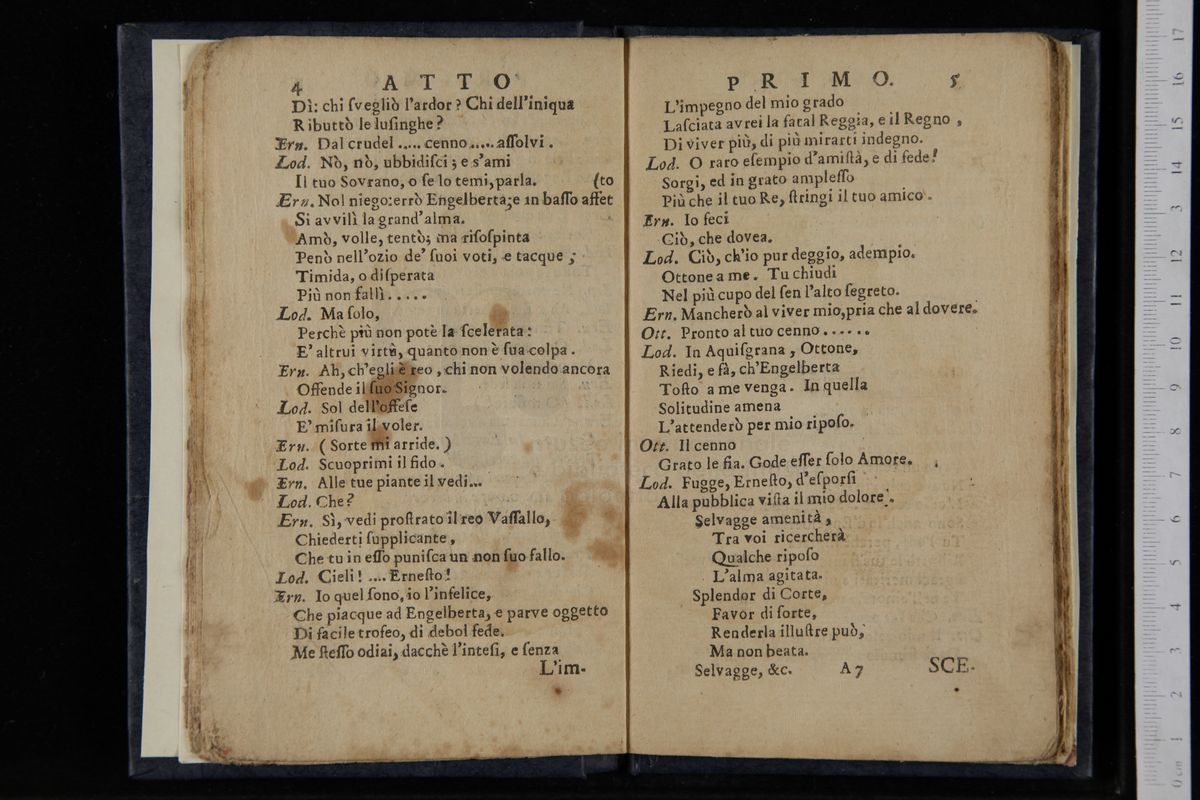 4 ATTO
Dì: chi ſvegliò l'ardor? Chi dell'iniqua
Ributtò le luſinghe?
Ern. Dal crudel ..... cenno ..... aſſolvi.
Lod. Nò, nò, ubbidiſci; e s'ami
Il tuo Sovrano, o ſe lo temi, parla. (to
Ern. Nol niego: errò Engelberta; e in baſſo affet
Si avvilì la grand'alma.
Amò, volle, tentò; ma riſoſpinta
Penò nell'ozio de' ſuoi voti, e tacque;
Timida, o diſperata
Più non fallì.....
Lod. Ma ſolo,
Perchè più non potè la ſcelerata:
E' altrui virtù, quanto non è ſua colpa.
Ern. Ah, ch'egli è reo, chi non volendo ancora
Offende il ſuo Signor.
Lod. Sol dell'offeſe
E' miſura il voler.
Ern. (Sorte mi arride.)
Lod. Scuoprimi il fido.
Ern. Alle tue piante il vedi...
Lod. Che?
Ern. Sì, vedi proſtrato il reo Vaſſallo,
Chiederti ſupplicante,
Che tu in eſſo puniſca un non ſuo fallo.
Lod. Cieli! .... Erneſto!
Ern. Io quel ſono, io l'infelice,
Che piacque ad Engelberta, e parve oggetto
Di facile trofeo, di debol fede.
Me ſteſſo odiai, dacchè l'inteſi, e ſenza
L'im-
PRIMO. 5
L'impegno del mio grado
Laſciata avrei la fatal Reggia, e il Regno,
Di viver più, di più mirarti indegno.
Lod. O raro eſempio d'amiſtà, e di fede!
Sorgi, ed in grato ampleſſo
Più che il tuo Re, ſtringi il tuo amico.
Ern. Io feci
Ciò, che dovea.
Lod. Ciò, ch'io pur deggio, adempio.
Ottone a me. Tu chiudi
Nel più cupo del ſen l'alto ſegreto.
Ern. Mancherò al viver mio, pria che al dovere.
Ott. Pronto al tuo cenno......
Lod. In Aquiſgrana, Ottone,
Riedi, e fà, ch'Engelberta
Toſto a me venga. In quella
Solitudine amena
L'attenderò per mio ripoſo.
Ott. Il cenno
Grato le fia. Gode eſſer ſolo Amore.
Lod. Fugge, Erneſto, d'eſporſi
Alla pubblica viſta il mio dolore.
Selvagge amenità,
Tra voi ricercherà
Qualche ripoſo
L'alma agitata.
Splendor di Corte,
Favor di ſorte,
Renderla illuſtre può,
Ma non beata.
Selvagge, &c. A7 SCE-
0 cm 1 2 3 4 5 6 7 8 9 10 11 12 13 14 15 16 17